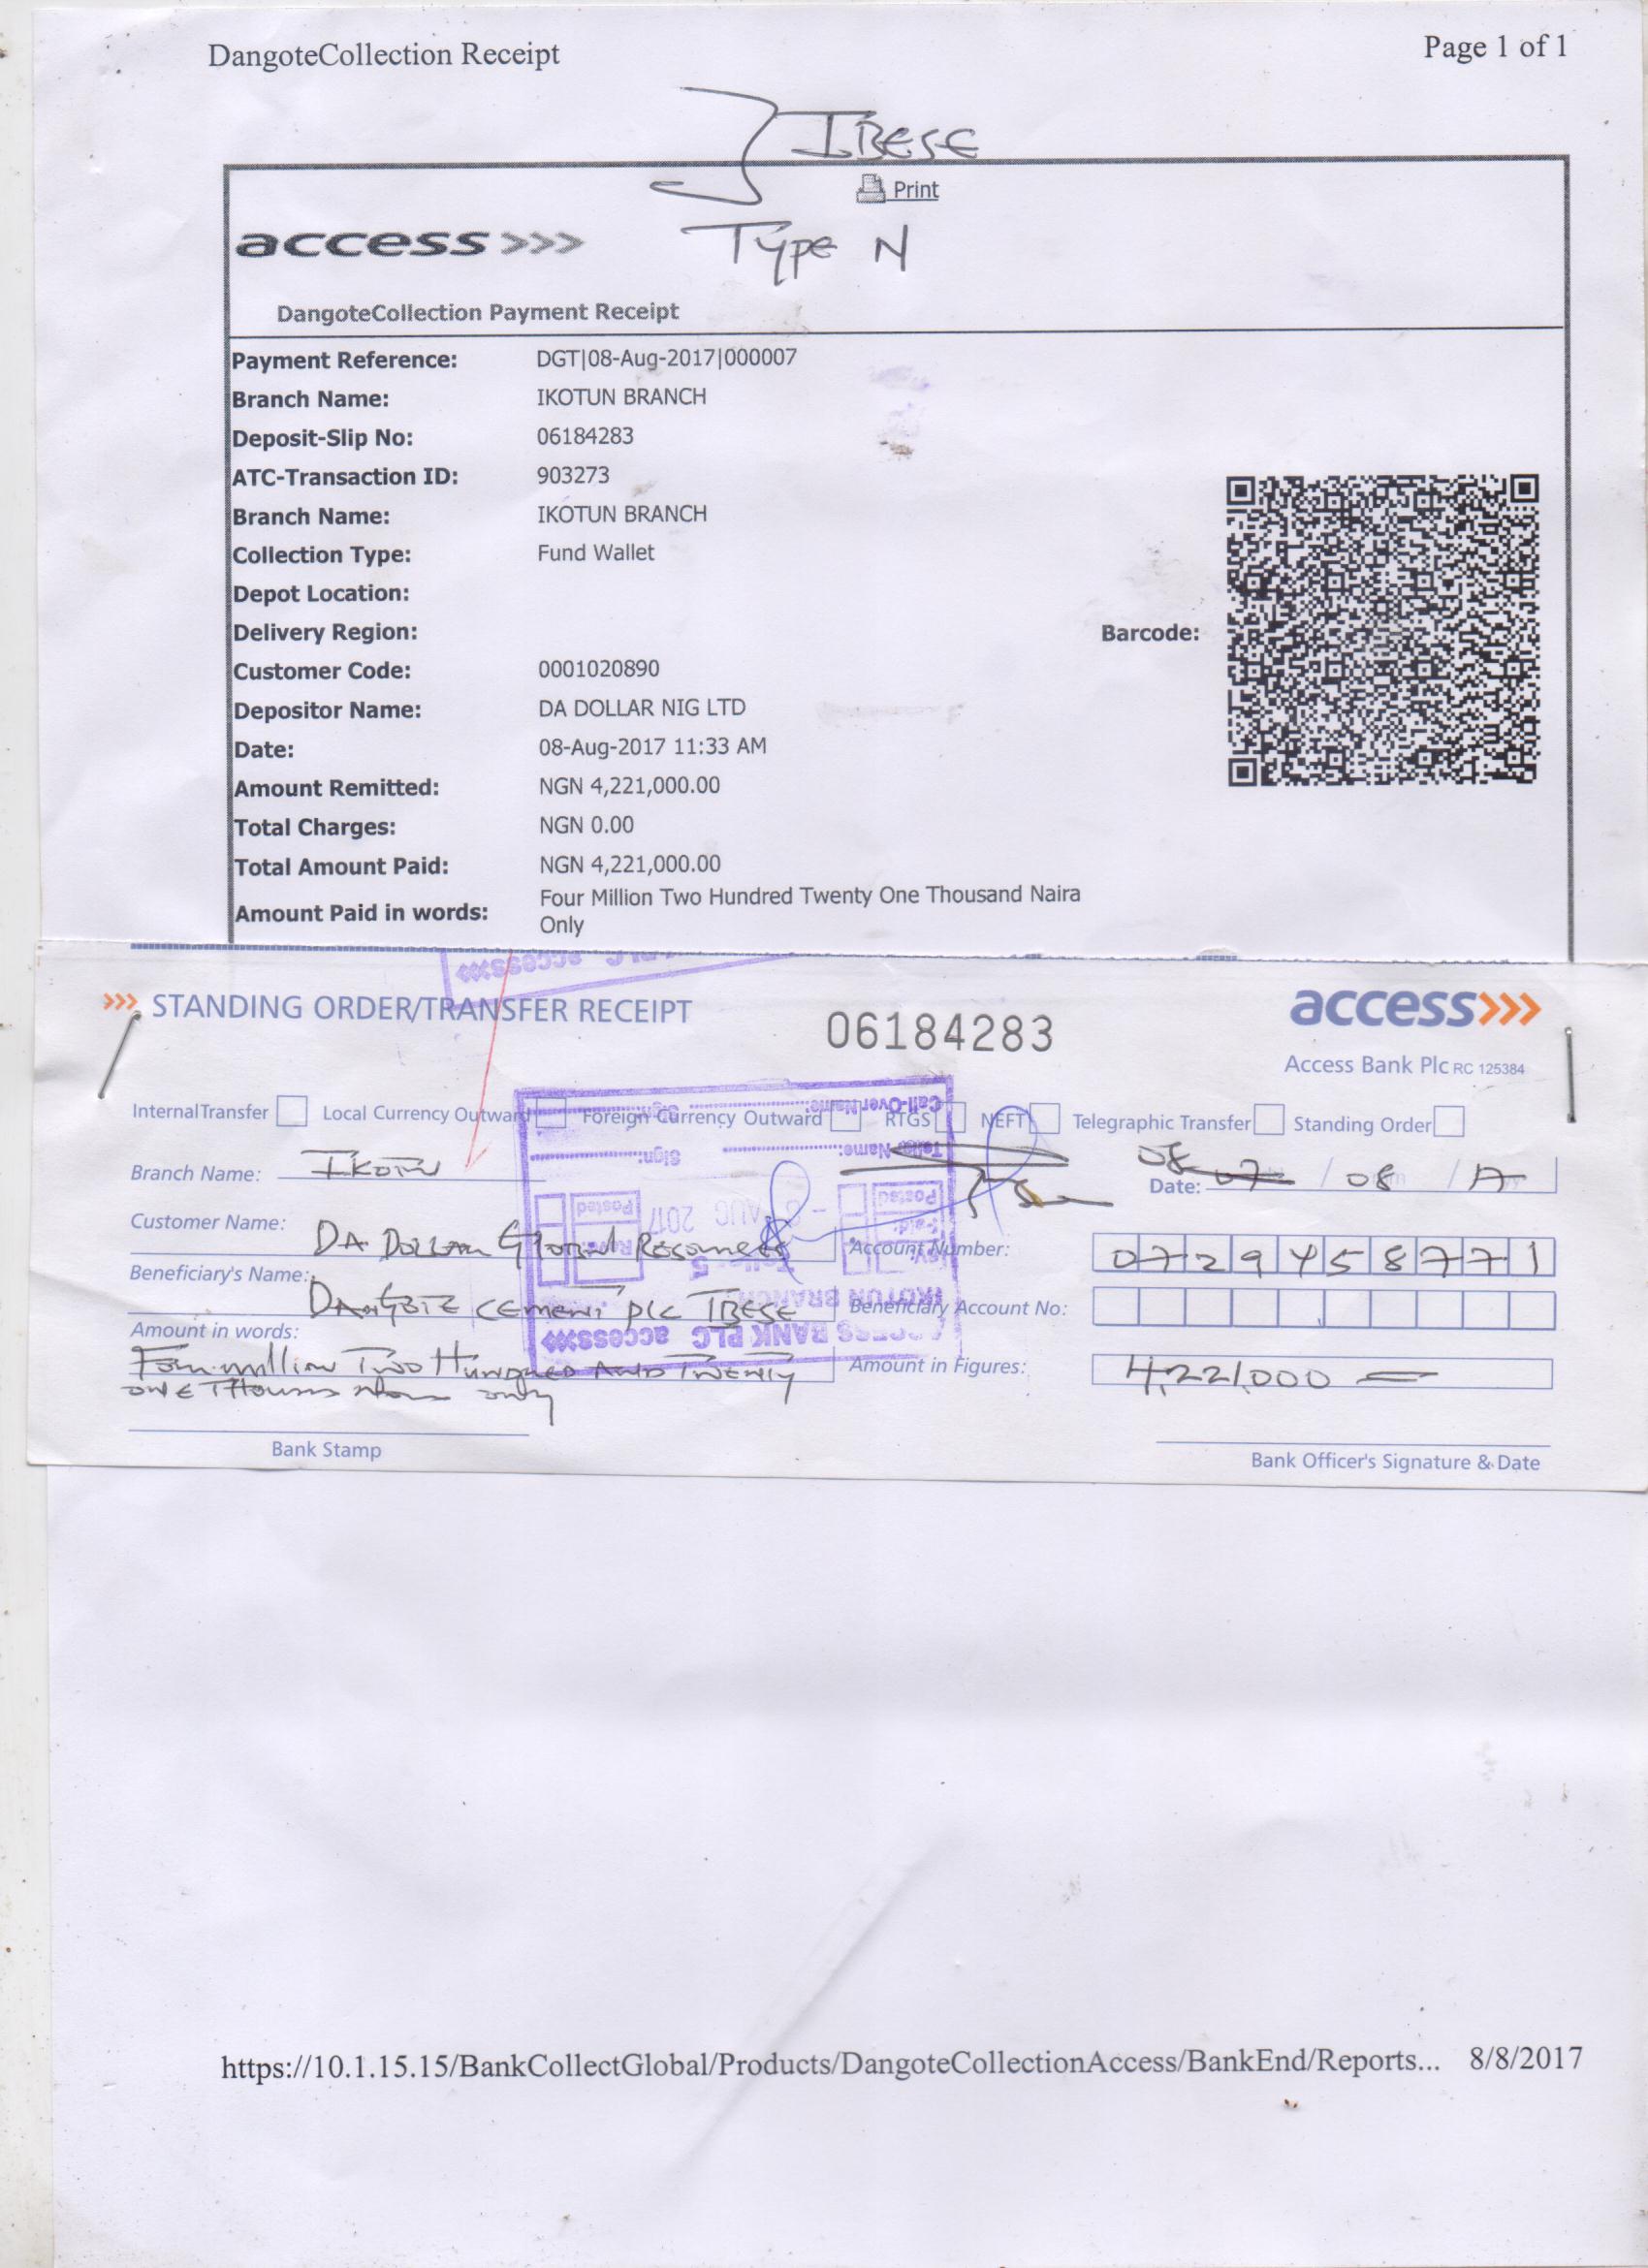 DangoteCollection Receipt Page 1 of 1
IBESE
Print
access>>>
Type N
DangoteCollection Payment Receipt
Payment Reference: DGT|08-Aug-2017|000007
Branch Name: IKOTUN BRANCH
Deposit-Slip No: 06184283
ATC-Transaction ID: 903273
Branch Name: IKOTUN BRANCH
Collection Type: Fund Wallet
Depot Location:
Delivery Region:
Barcode:
Customer Code: 0001020890
Depositor Name: DA DOLLAR NIG LTD
Date: 08-Aug-2017 11:33 AM
Amount Remitted: NGN 4,221,000.00
Total Charges: NGN 0.00
Total Amount Paid: NGN 4,221,000.00
Amount Paid in words: Four Million Two Hundred Twenty One Thousand Naira
Only
PLC access>>>
>>> STANDING ORDER/TRANSFER RECEIPT 06184283 access>>>
Access Bank Plc RC 125384
Internal Transfer Local Currency Outward Foreign Currency Outward RTGS NEFT Telegraphic Transfer Standing Order
Branch Name: IKOTUN Date: 08 07 / 08 / 17
Customer Name: DA DOLLAR Global Resources Account Number: 0729458771
Beneficiary's Name: DANGOTE CEMENT PLC IBESE Beneficiary Account No:
Amount in words: Four million Two Hundred AND TWENTY Amount in Figures: 4,221,000 =
ONE Thousand only
ACCESS BANK PLC access>>>
IKOTUN BRANCH
Teller 5
8 AUG 2017
Posted
Posted
Paid:
Teller Name: Sign:
Call-Over Name: Sign:
Bank Stamp Bank Officer's Signature & Date
https://10.1.15.15/BankCollectGlobal/Products/DangoteCollectionAccess/BankEnd/Reports... 8/8/2017